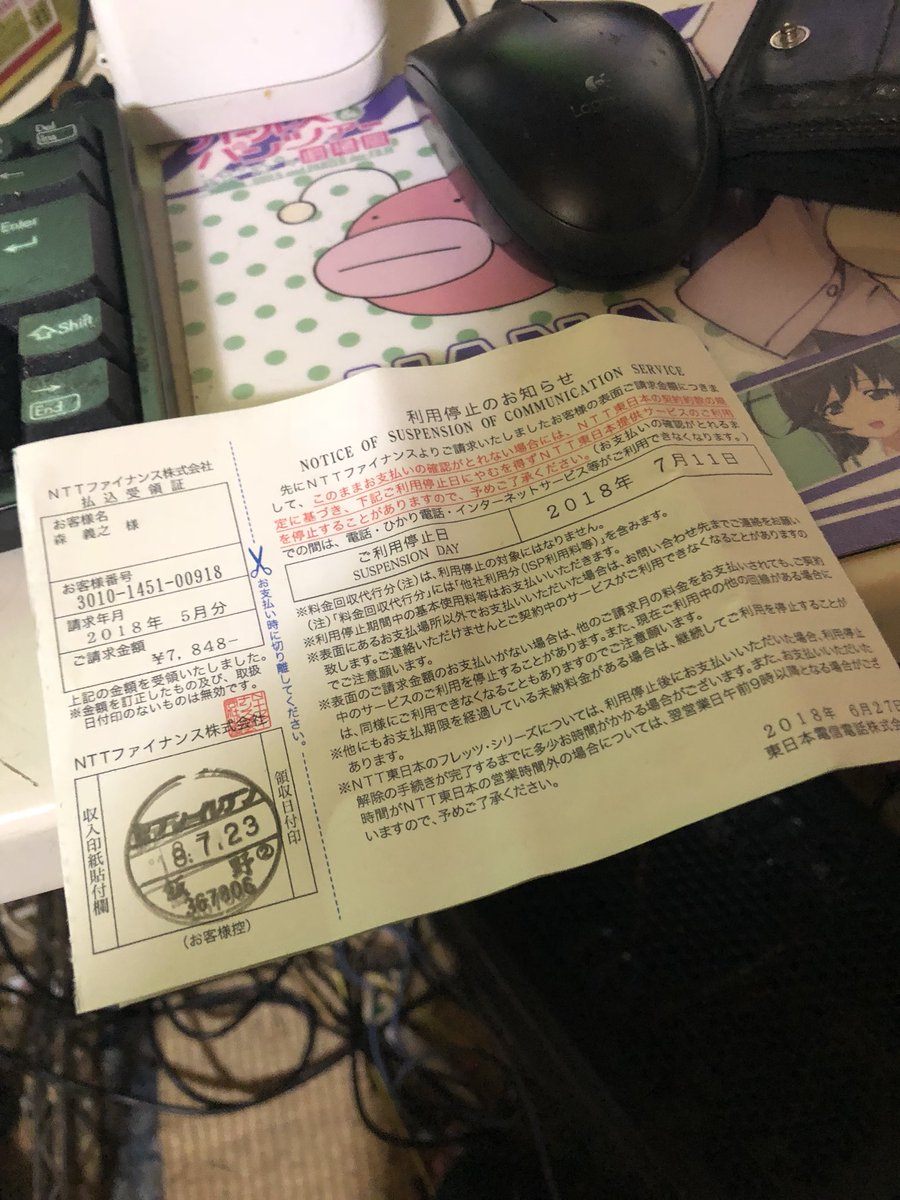 Del
Enter
Shift
End
パンツァー
劇場版
NTTファイナンス株式会社
払込受領証
お客様名
森 義之 様
お客様番号
3010-1451-00918
請求年月
2018年 5月分
ご請求金額
¥7,848-
上記の金額を受領いたしました。
※金額を訂正したもの及び、取扱
日付印のないものは無効です。
NTTファイナンス株式会社
収入印紙貼付欄
領収日付印
セブン-イレブン
18.7.23
野②
367006
(お客様控)
お支払い時に切り離してください。
利用停止のお知らせ
NOTICE OF SUSPENSION OF COMMUNICATION SERVICE
先にNTTファイナンスよりご請求いたしましたお客様の表面ご請求金額につきま
して、このままお支払いの確認がとれない場合には、NTT東日本の契約約款の規
定に基づき、下記ご利用停止日にやむを得ずNTT東日本提供サービスのご利用
を停止することがありますので、予めご了承ください。(お支払いの確認がとれるま
での間は、電話・ひかり電話・インターネットサービス等がご利用できなくなります。)
ご利用停止日
SUSPENSION DAY
2018年 7月11日
※料金回収代行分(注)は、利用停止の対象にはなりません。
(注)「料金回収代行分」には「他社利用分(ISP利用料等)」を含みます。
※利用停止期間中の基本使用料等はお支払いいただきます。
※表面にあるお支払場所以外でお支払いいただいた場合は、お問い合わせ先までご連絡をお願い
致します。ご連絡いただけませんとご契約中のサービスがご利用できなくなることがありますの
でご注意願います。
※表面のご請求金額のお支払いがない場合は、他のご請求月の料金をお支払いされても、ご契約
中のサービスのご利用を停止することがあります。また、現在ご利用中の他の回線がある場合に
は、同様にご利用できなくなることもありますのでご注意願います。
※他にもお支払期限を経過している未納料金がある場合は、継続してご利用を停止することが
あります。
※NTT東日本のフレッツ・シリーズについては、利用停止後にお支払いいただいた場合、利用停止
解除の手続きが完了するまでに多少お時間がかかる場合がございます。また、お支払いいただいた
時間がNTT東日本の営業時間外の場合については、翌営業日午前9時以降となる場合がござ
いますので、予めご了承ください。
2018年 6月27日
東日本電信電話株式会